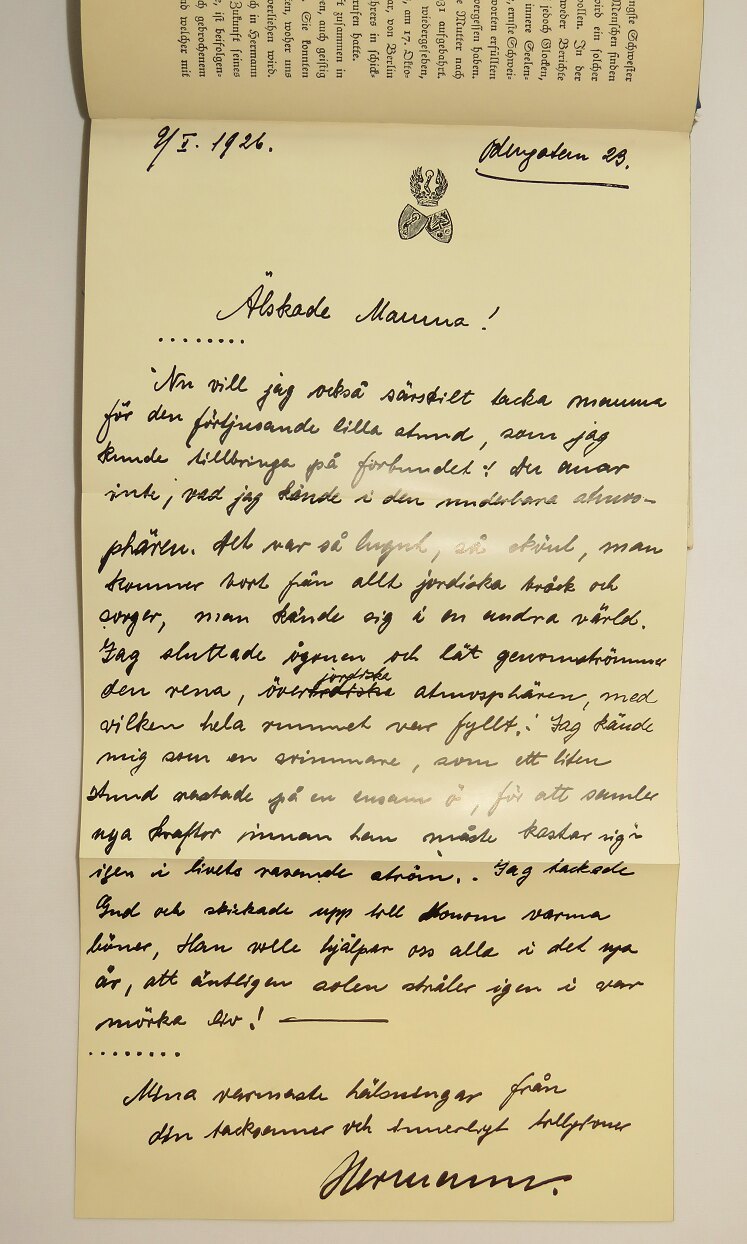 ngste Schwester
Menschen finden
wird ein solcher
ollen. In der
weder Berichte
jedoch Glocken,
innere Seelen-
, ernste Schwei-
worten erfüllten
vergessen haben.
e Mutter nach
31 aufgebahrt.
wiedergegeben,
, am 17. Okto-
ar, von Berlin
hrers in schick-
rufen hatte.
t zusammen in
en, auch geistig
Sie konnten
ten, woher uns
verliehen wird.
ch in Hermann
Zukunft seines
, ist beifolgen-
ch gebrochenem
nd welcher mit
9/I. 1926.
Odengatan 23.
Älskade Mamma!
........
Nu vill jag också särskilt tacka mamma
för den förtjusande lilla stund, som jag
kunde tillbringa på förbundet! Du anar
inte, vad jag kände i den underbara atmos-
phären. Det var så lugnt, så skönt, man
kommer bort från allt jordiska bråck och
sorger, man kände sig i en andra värld.
Jag sluttade ögonen och lät genomströmmer
den rena, överjordiska atmosphären, med
vilken hela rummet var fyllt.! Jag kände
mig som en svimmare, som ett liten
stund rastade på en ensam ö, för att samler
nya kraftor innan han måste kastar sig
igen i livets rasende ström.. Jag tackade
Gud och skickade upp till Honom varma
böner, Han volle hjälpar oss alla i det nya
år, att äntligen solen stråler igen i var
mörka liv! —
........
Mina varmaste hälsningar från
din tacksammer och innerligt tillgivner
Hermann.